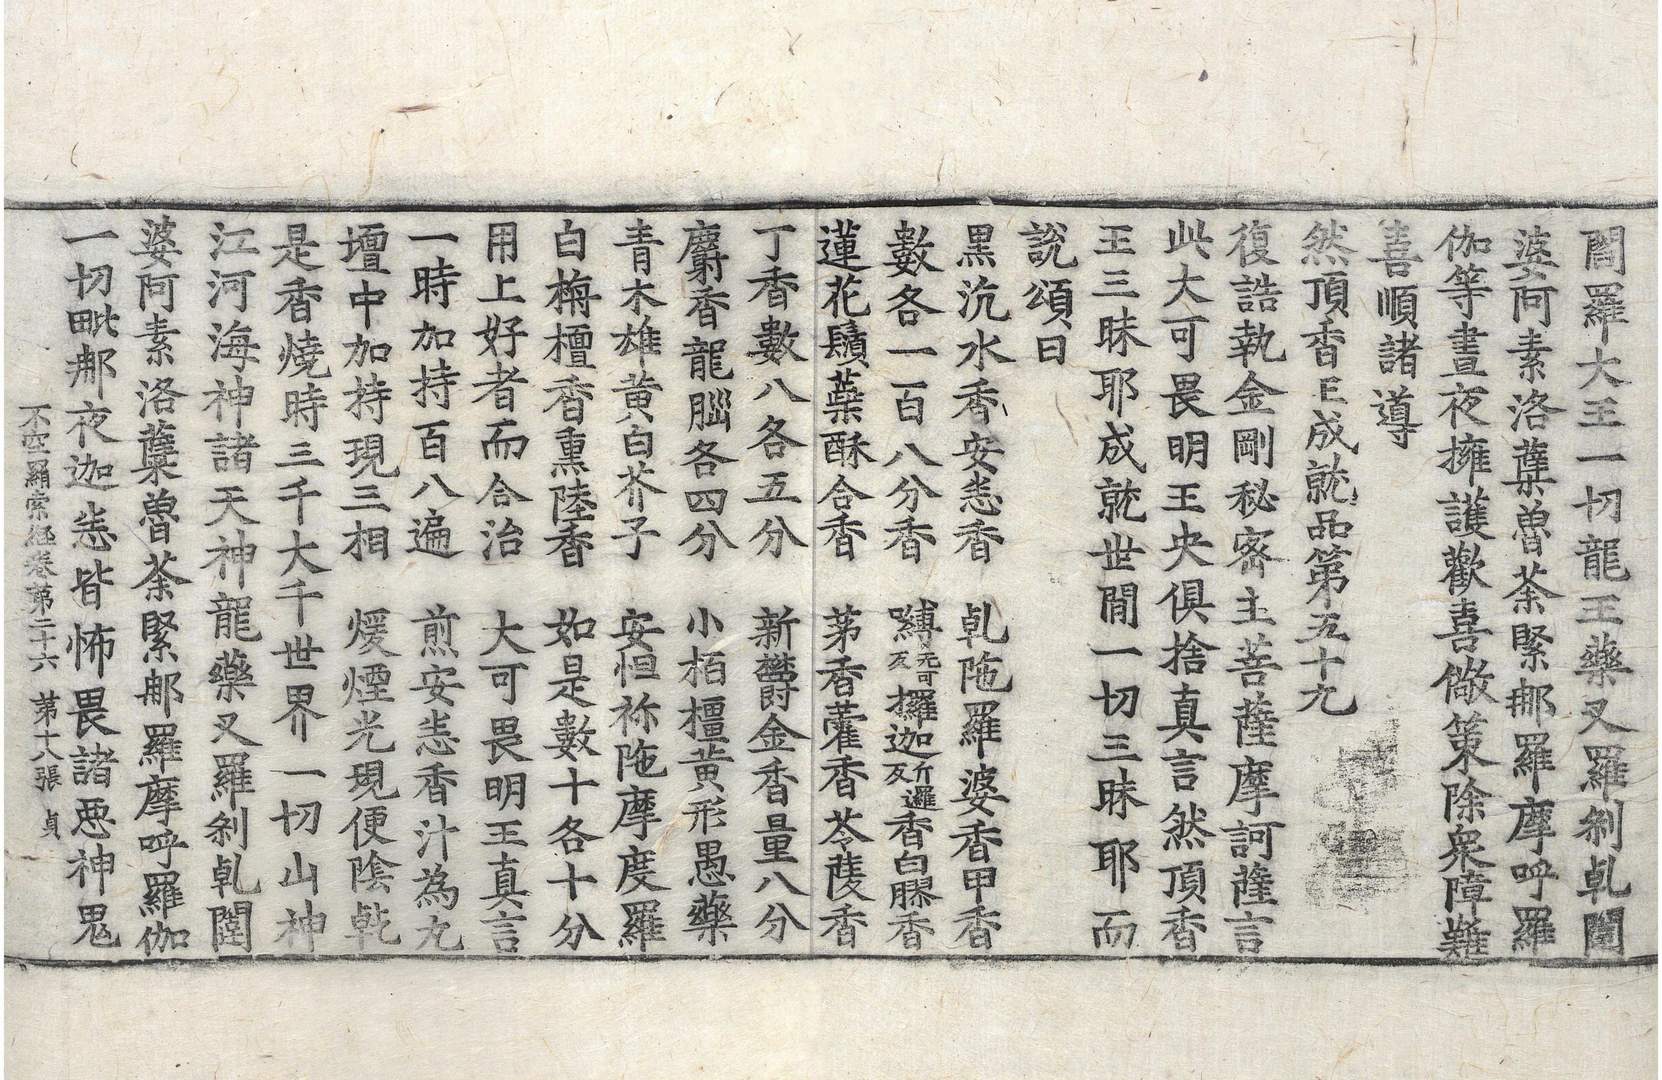 閻羅大王一切龍王藥叉羅剎乹闥
婆阿素洛蘗魯荼緊那羅摩呼羅
伽等晝夜擁護歡喜儆策除衆障難
喜順諸導
然頂香王成就品第五十九
復誥執金剛秘密主菩薩摩訶薩言
此大可畏明王央俱捨真言然頂香
王三昧耶成就世間一切三昧耶而
說頌曰
黑沉水香安悉香　乹陁羅婆香甲香
數各一百八分香　縛无可反攞迦斤邏反香白膠香
蓮花鬚蘂酥合香　茅香藿香苓陵香
丁香數八各五分　新欝金香量八分
麝香龍腦各四分　小栢檀黄形愚藥
青木雄黄白芥子　安怛祢陁摩度羅
白栴檀香熏陸香　如是數十各十分
用上好者而合治　大可畏明王真言
一時加持百八遍　煎安悉香汁為丸
壇中加持現三相　煖煙光現便陰乾
是香燒時三千大千世界一切山神
江河海神諸天神龍藥叉羅剎乹闥
婆阿素洛蘗魯荼緊那羅摩呼羅伽
一切毗那夜迦悉皆怖畏諸惡神鬼
不空羂索經卷第二十六　第十八張　貞